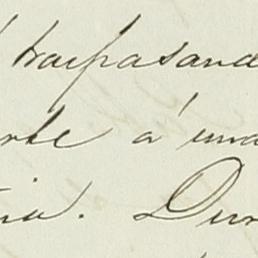 traspasand
rte á una
ia. Dur